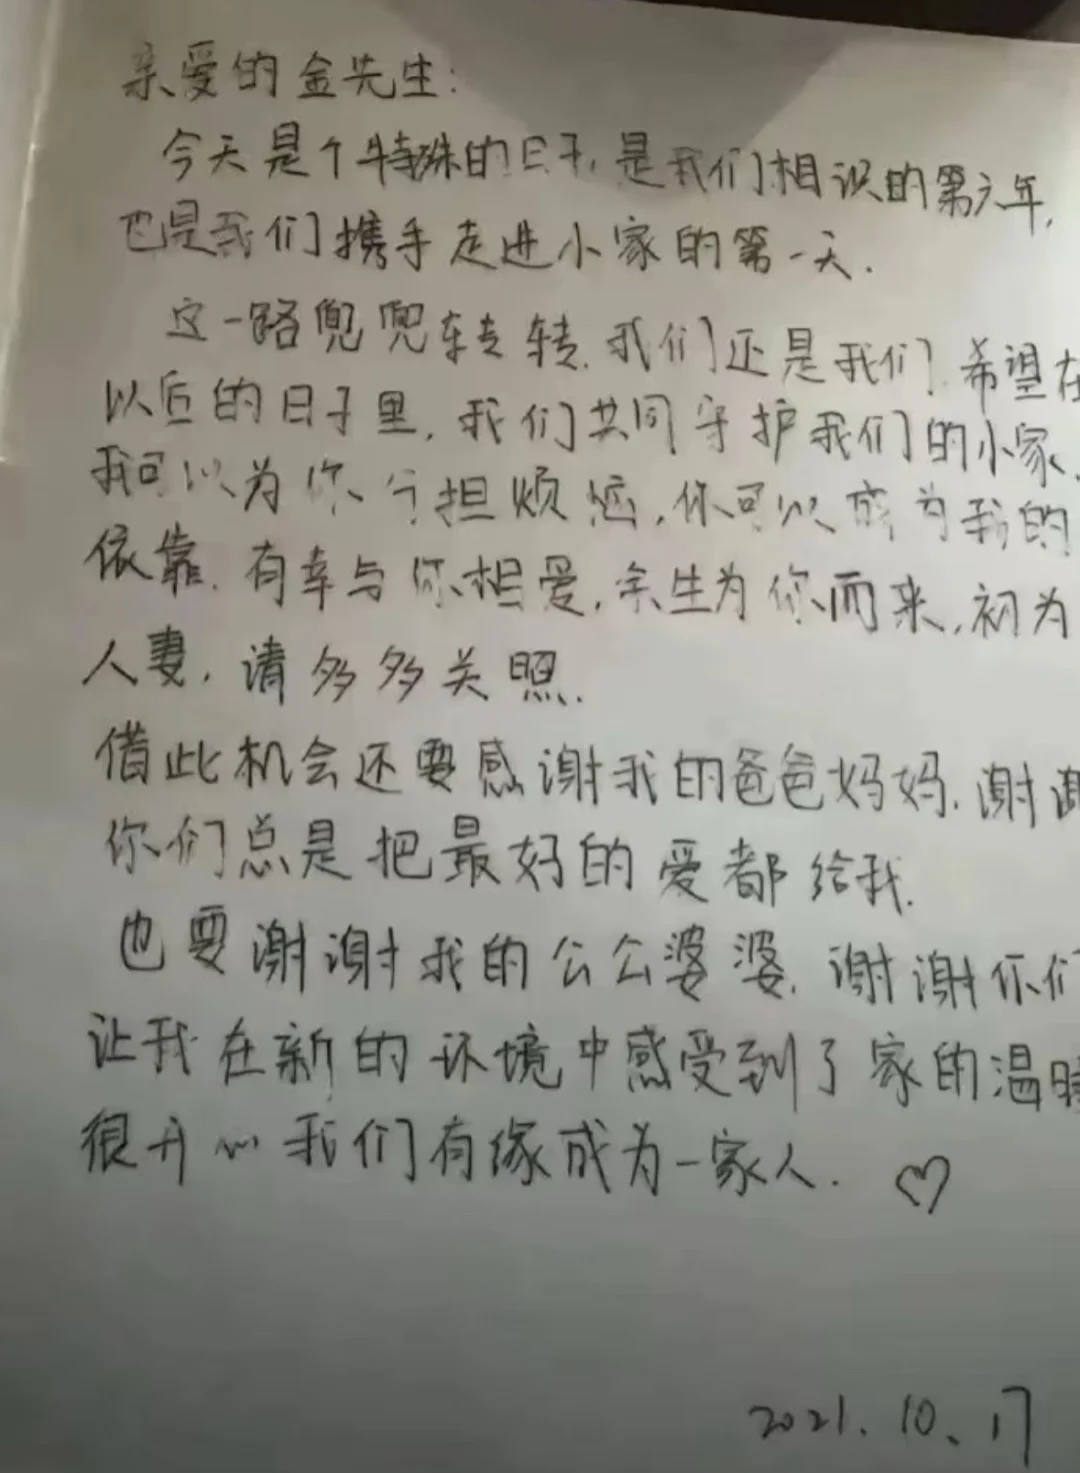 亲爱的金先生:
今天是个特殊的日子,是我们相识的第六年,
也是我们携手走进小家的第一天.
这一路兜兜转转.我们还是我们.希望在
以后的日子里,我们共同守护我们的小家.
我可以为你分担烦恼,你可以成为我的
依靠.有幸与你相爱,余生为你而来,初为
人妻,请多多关照.
借此机会还要感谢我的爸爸妈妈.谢谢
你们总是把最好的爱都给我.
也要谢谢我的公公婆婆.谢谢你们
让我在新的环境中感受到了家的温暖
很开心我们有缘成为一家人. ♡
2021.10.17